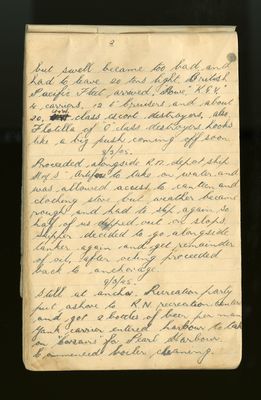 3
but swell became too bad, and
had to leave 20 tons light. British
Pacific Fleet, arrived, Howe, "K.G.V."
4, carriers, 12 6" cruisers, and about
20, class escort destroyers, also
Flotilla of "O" class destroyers looks
like a big push coming off soon
8/3/45.
Proceeded alongside R.N. depot ship
H.M.S. "Artifex" to take on water, and
was allowed access to canteen and
clothing store but weather became
rough and had to slip again, so
half of us out of slops
skipper decided to go alongside
tanker again and get remainder
of oil, after oiling proceeded
back to anchorage.
9/3/45.
Still at anchor. Recreation party
put ashore to R.N. recreation centre
and got 2 bottles of beer per man
Yank carrier entered harbour to take
on "Corsairs" for Pearl Harbour.
Commenced boiler cleaning.